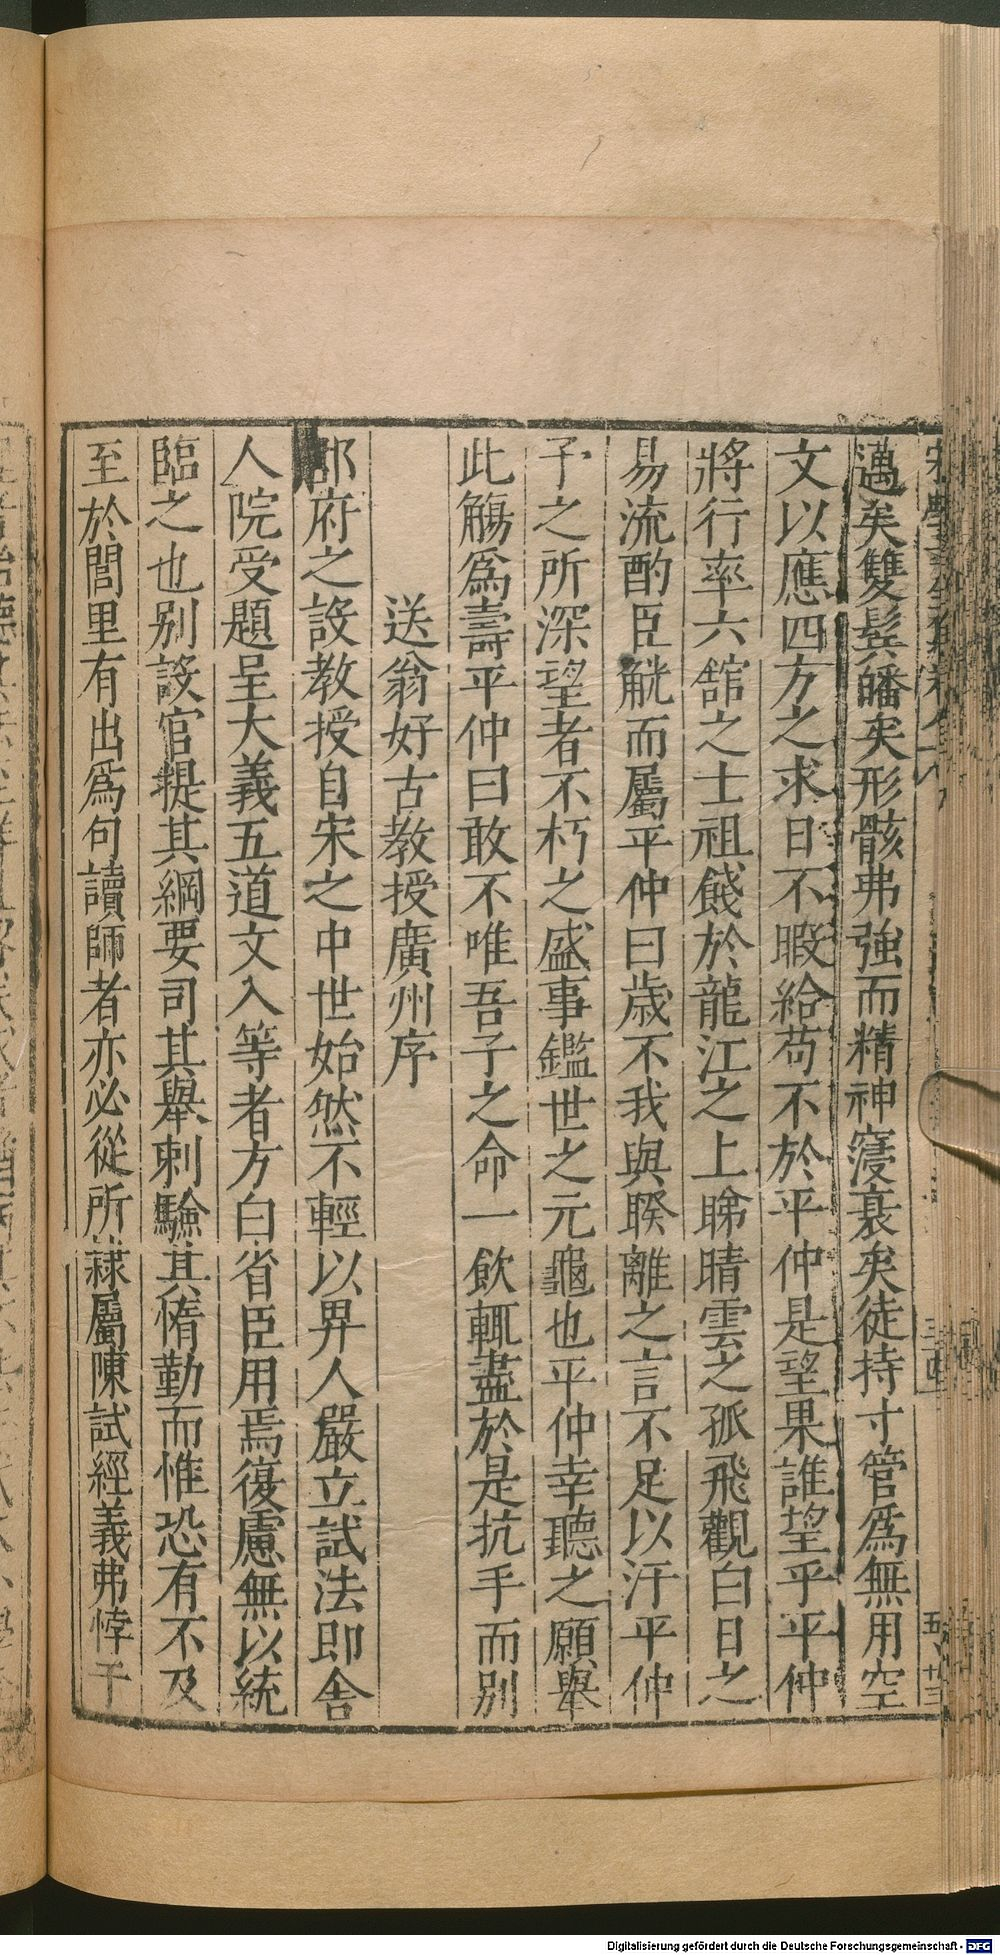 邁矣雙鬂皤矣形骸弗強而精神寖衰矣徒持寸管爲無用空
文以應四方之求日不暇給苟不於平仲是望果誰望乎平仲
將行率六舘之士祖餞於龍江之上睇晴雲之孤飛觀白日之
易流酌巨觥而屬平仲曰歲不我與睽離之言不足以汙平仲
予之所深望者不朽之盛事鑑世之元龜也平仲幸聽之願舉
此觴爲壽平仲曰敢不唯吾子之命一飲輒盡於是抗手而别
送翁好古教授廣州序
郡府之設教授自宋之中世始然不輕以畀人嚴立試法即舍
人院受題呈大義五道文入等者方白省臣用焉復慮無以統
臨之也别設官提其綱要司其舉刺驗其惰勤而惟恐有不及
至於閭里有出爲句讀師者亦必從所隸屬陳試經義弗悖于
Digitalisierung gefördert durch die Deutsche Forschungsgemeinschaft - DFG